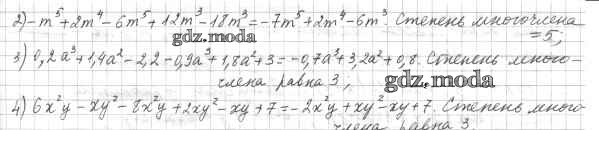 2) -m⁵ + 2m⁴ - 6m⁵ + 12m³ - 18m³ = -7m⁵ + 2m⁴ - 6m³. Степень многочлена
= 5;
gdz.moda
3) 0,2a³ + 1,4a² - 2,2 - 0,9a³ + 1,8a² + 3 = -0,7a³ + 3,2a² + 0,8. Степень много-
члена равна 3;
gdz.moda
4) 6x²y - xy² - 8x²y + 2xy² - xy + 7 = -2x²y + xy² - xy + 7. Степень много-
члена равна 3.